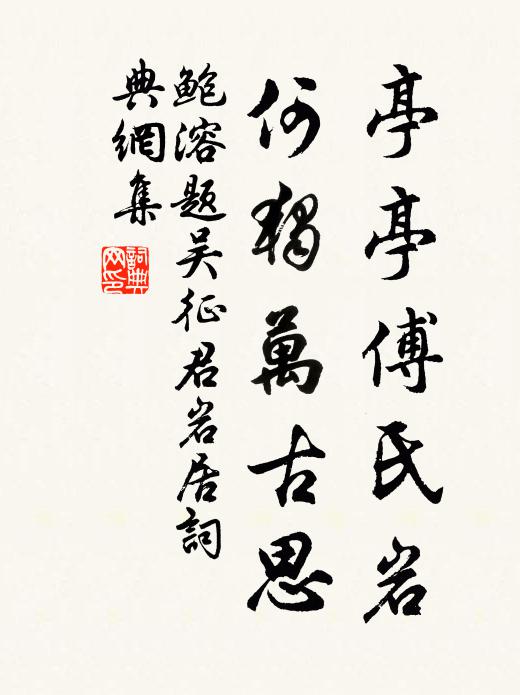 亭亭傅氏岩
何獨萬古思
鮑溶题吴征君岩居詞
典網集
詞典网印